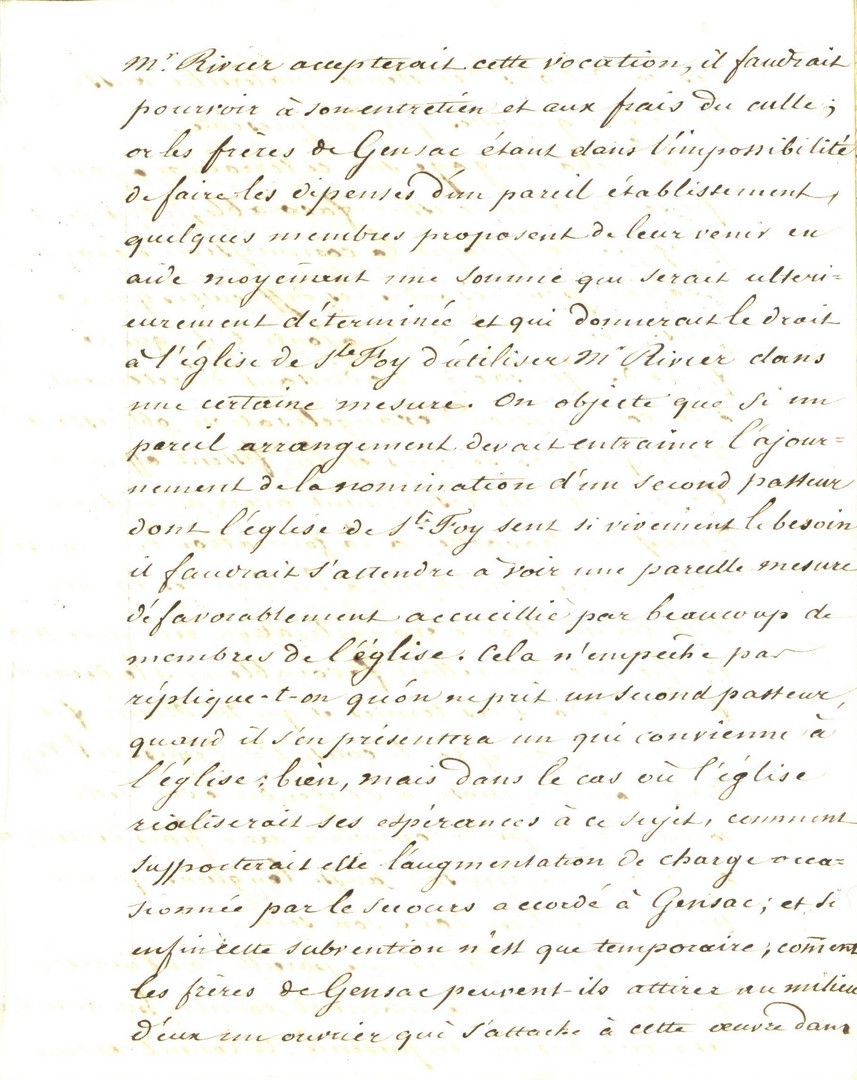 Mr. Rivier accepterait cette vocation, il faudrait
pourvoir à son entretien et aux frais du culte ;
or les frères de Gensac étant dans l'impossibilité
de faire les dépenses d'un pareil établissement,
quelques membres proposent de leur venir en
aide moyennant une somme qui serait ulteri=
eurement déterminée et qui donnerait le droit
à l'église de Ste Foy d'utiliser Mr Rivier dans
une certaine mesure. On objecte que si un
pareil arrangement devait entrainer l'ajour=
nement de la nomination d'un second pasteur
dont l'église de Ste Foy sent si vivement le besoin
il faudrait s'attendre à voir une pareille mesure
défavorablement accueillie par beaucoup de
membres de l'église. Cela n'empêche pas
réplique-t-on qu'on ne prit un second pasteur,
quand il s'en présentera un qui convienne à
l'église ; bien, mais dans le cas où l'église
réaliserait ses espérances à ce sujet, comment
supporterait elle l'augmentation de charge occa=
sionnée par le secours accordé à Gensac ; et si
enfin cette subvention n'est que temporaire, com̄ent
les frères de Gensac peuvent-ils attirer au milieu
d'eux un ouvrier qui s'attache à cette œuvre dans